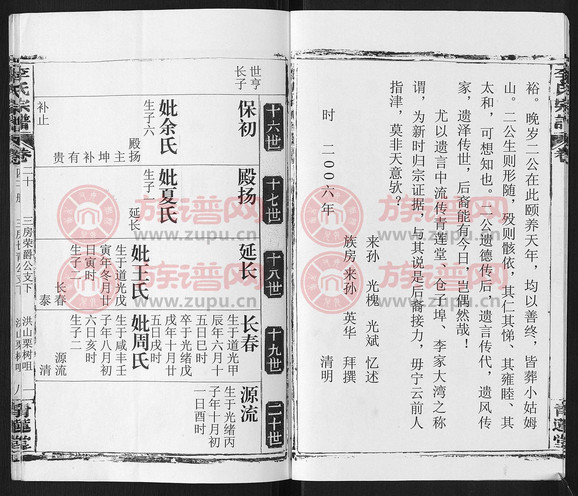 裕。晚岁二公在此颐养天年，均以善终，皆葬小姑姆
山。二公生则形随，殁则骸依，其仁其悌、其雍睦、其
太和，可想知也。二公遗德传后，遗言传代，遗风传
家，遗泽传世，后裔能有今日，岂偶然哉！
尤以遗言中流传青莲堂、仓子埠、李家大湾之称
谓，为新时归宗证据，与其说是后裔接力，毋宁云前人
指津，莫非天意欤？
来孙 光槐 光斌 忆述
族房来孙 英华 拜撰
时 二00六年 清明
李氏宗谱
卷
青莲堂
十六世
十七世
十八世
十九世
二十世
世亨
长子
保初
妣余氏
生子六
殿扬
主
坤
补
有
贵
补止
殿扬
妣夏氏
生子一
延长
延长
妣王氏
生于道光戊
寅年冬月廿
日寅时
生子二
长春
泰
长春
生于道光甲
辰年六月十
五日巳时
卒于光绪戊
戌年十月廿
五日戌时
妣周氏
生于咸丰壬
子年八月初
六日亥时
生子二
源流
清
源流
生于光绪丙
子年十月初
一日酉时
李氏宗谱
卷
三房荣爵公支下
洪山栗树咀
青莲堂
族谱网
www.zupu.cn
族谱网
www.zupu.cn